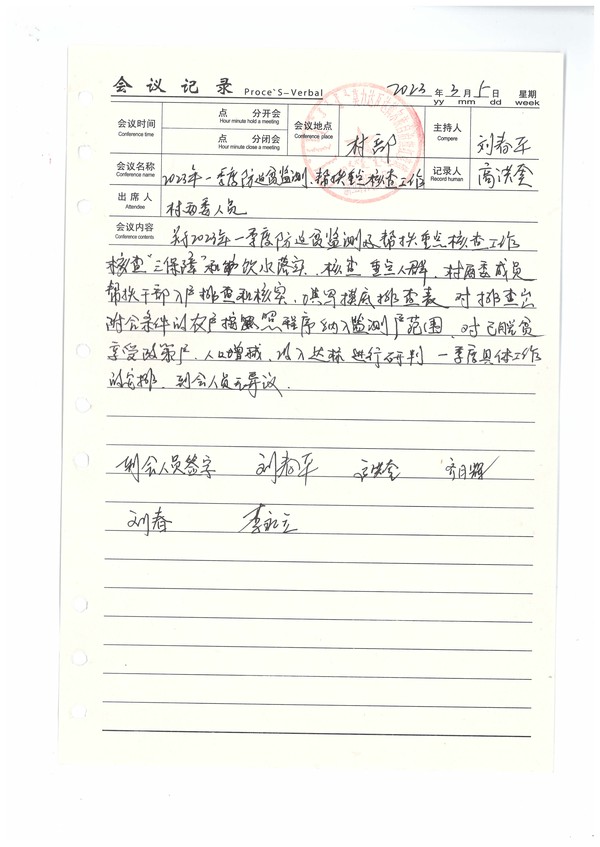 会议记录 Proce`S-Verbal 2023年3月5日 星期
yy mm dd week
会议时间 Conference time 点 分开会 Hour minute hold a meeting 会议地点 Conference place 村部 主持人 Compere 刘春平
点 分闭会 Hour minute close a meeting
会议名称 Conference name 2023年一季度防返贫监测、帮扶重点核查工作 记录人 Record human 高洪奎
出席人 Attendee 村两委人员
会议内容 Conference contents 对2023年一季度防返贫监测及帮扶重点核查工作
核查“三保障”和饮水落实、核查重点人群,村两委成员
帮扶干部入户排查和核实,填写摸底排查表 对排查出
附合条件的农户按照程序纳入监测户范围,对已脱贫
享受政策户,人口增减,收入达标进行研判 一季度具体工作
的安排,到会人员无异议.
到会人员签字 刘春平 高洪奎
刘春 李